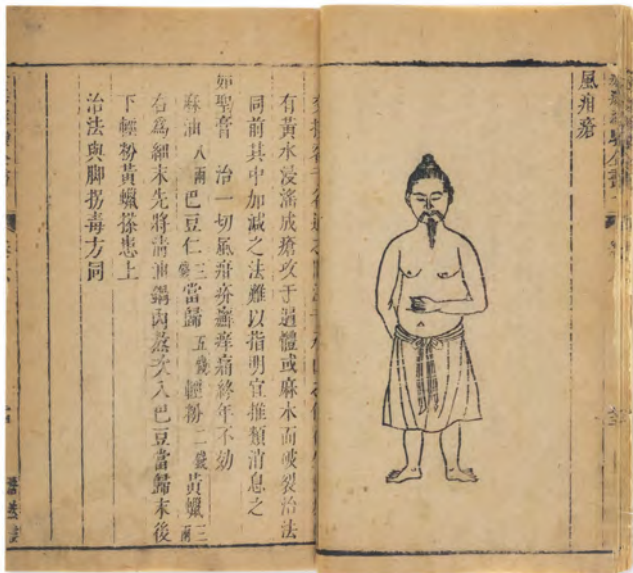 風疳瘡
有黃水浸滛成瘡攻于遍體或麻木而破裂治法
同前其中加減之法難以指明宜推類消息之
如聖膏 治一切風疳疥癬痒痛終年不効
麻油八兩 巴豆仁三錢 當歸五錢 輕粉二錢 黃蠟三兩
右為細末先將清油鍋內熬次入巴豆當歸末後
下輕粉黃蠟搽患上
治法與脚拐毒方同